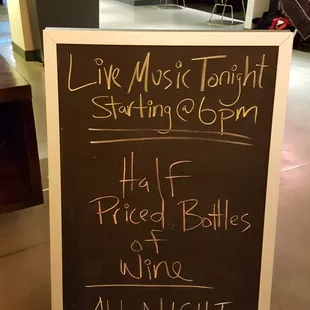 Live Music Tonight
Starting @ 6pm
Half
Priced Bottles
of
Wine
ALL NIGHT